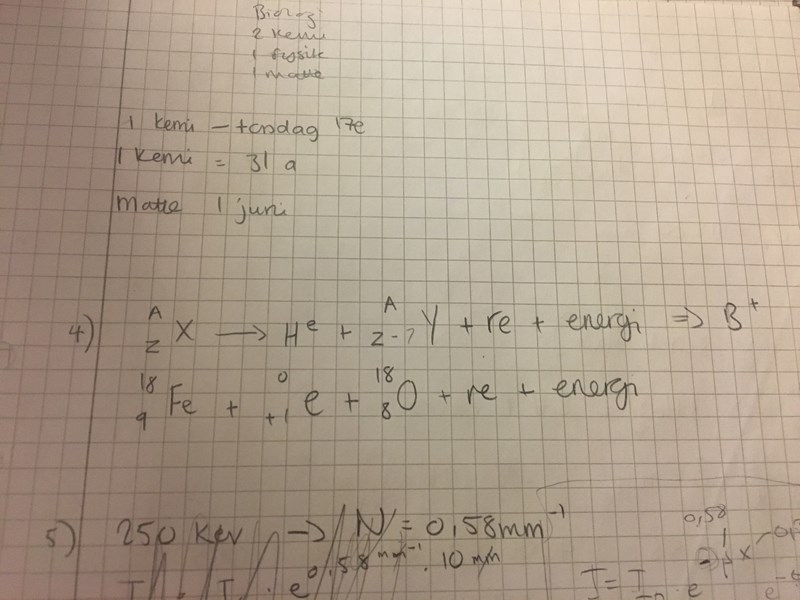 Biologi
2 kemi
1 fysik
1 matte
1 kemi – torsdag 17e
1 Kemi = 31 a
Matte 1 juni
4) A Z X → He + A Z-? Y + re + energi ⇒ B+
18 9 Fe + 0 +1 e + 18 8 O + re + energi
5) 250 Kev → N = 0,58mm-1
e 0,58 mm-1 · 10 mm
0,58
I = I0 e -μx